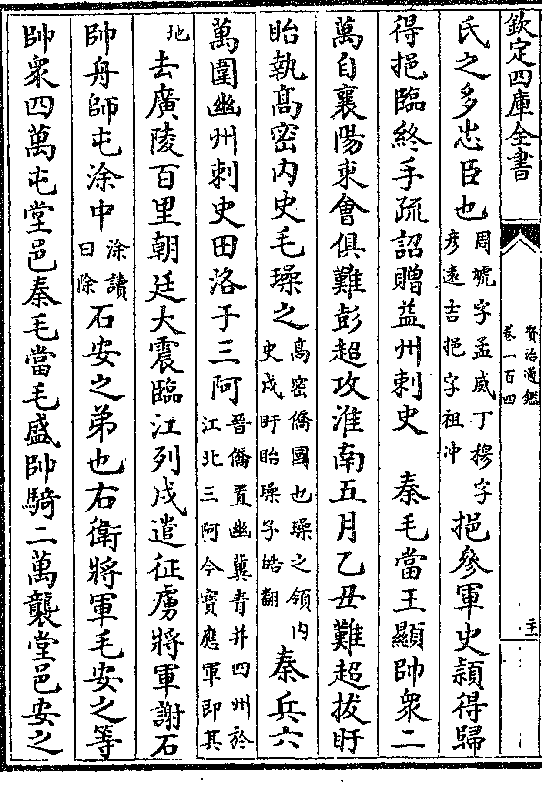 欽定四庫全書
資治通鑑
卷一百四
氏之多忠臣也周虓字孟威丁穆字彦遠吉挹字祖沖挹參軍史頴得歸
得挹臨終手疏詔贈益州刺史　秦毛當王顯帥衆二
萬自襄陽東會俱難彭超攻淮南五月乙丑難超拔盱
眙執髙密内史毛璪之髙密僑國也璪之領内史戍盱眙璪子皓翻秦兵六
萬圍幽州刺史田洛于三阿晉僑置幽冀青并四州於江北三阿今寳應軍即其
地去廣陵百里朝廷大震臨江列戍遣征虜將軍謝石
帥舟師屯涂中涂讀曰除石安之弟也右衛將軍毛安之等
帥衆四萬屯堂邑秦毛當毛盛帥騎二萬襲堂邑安之